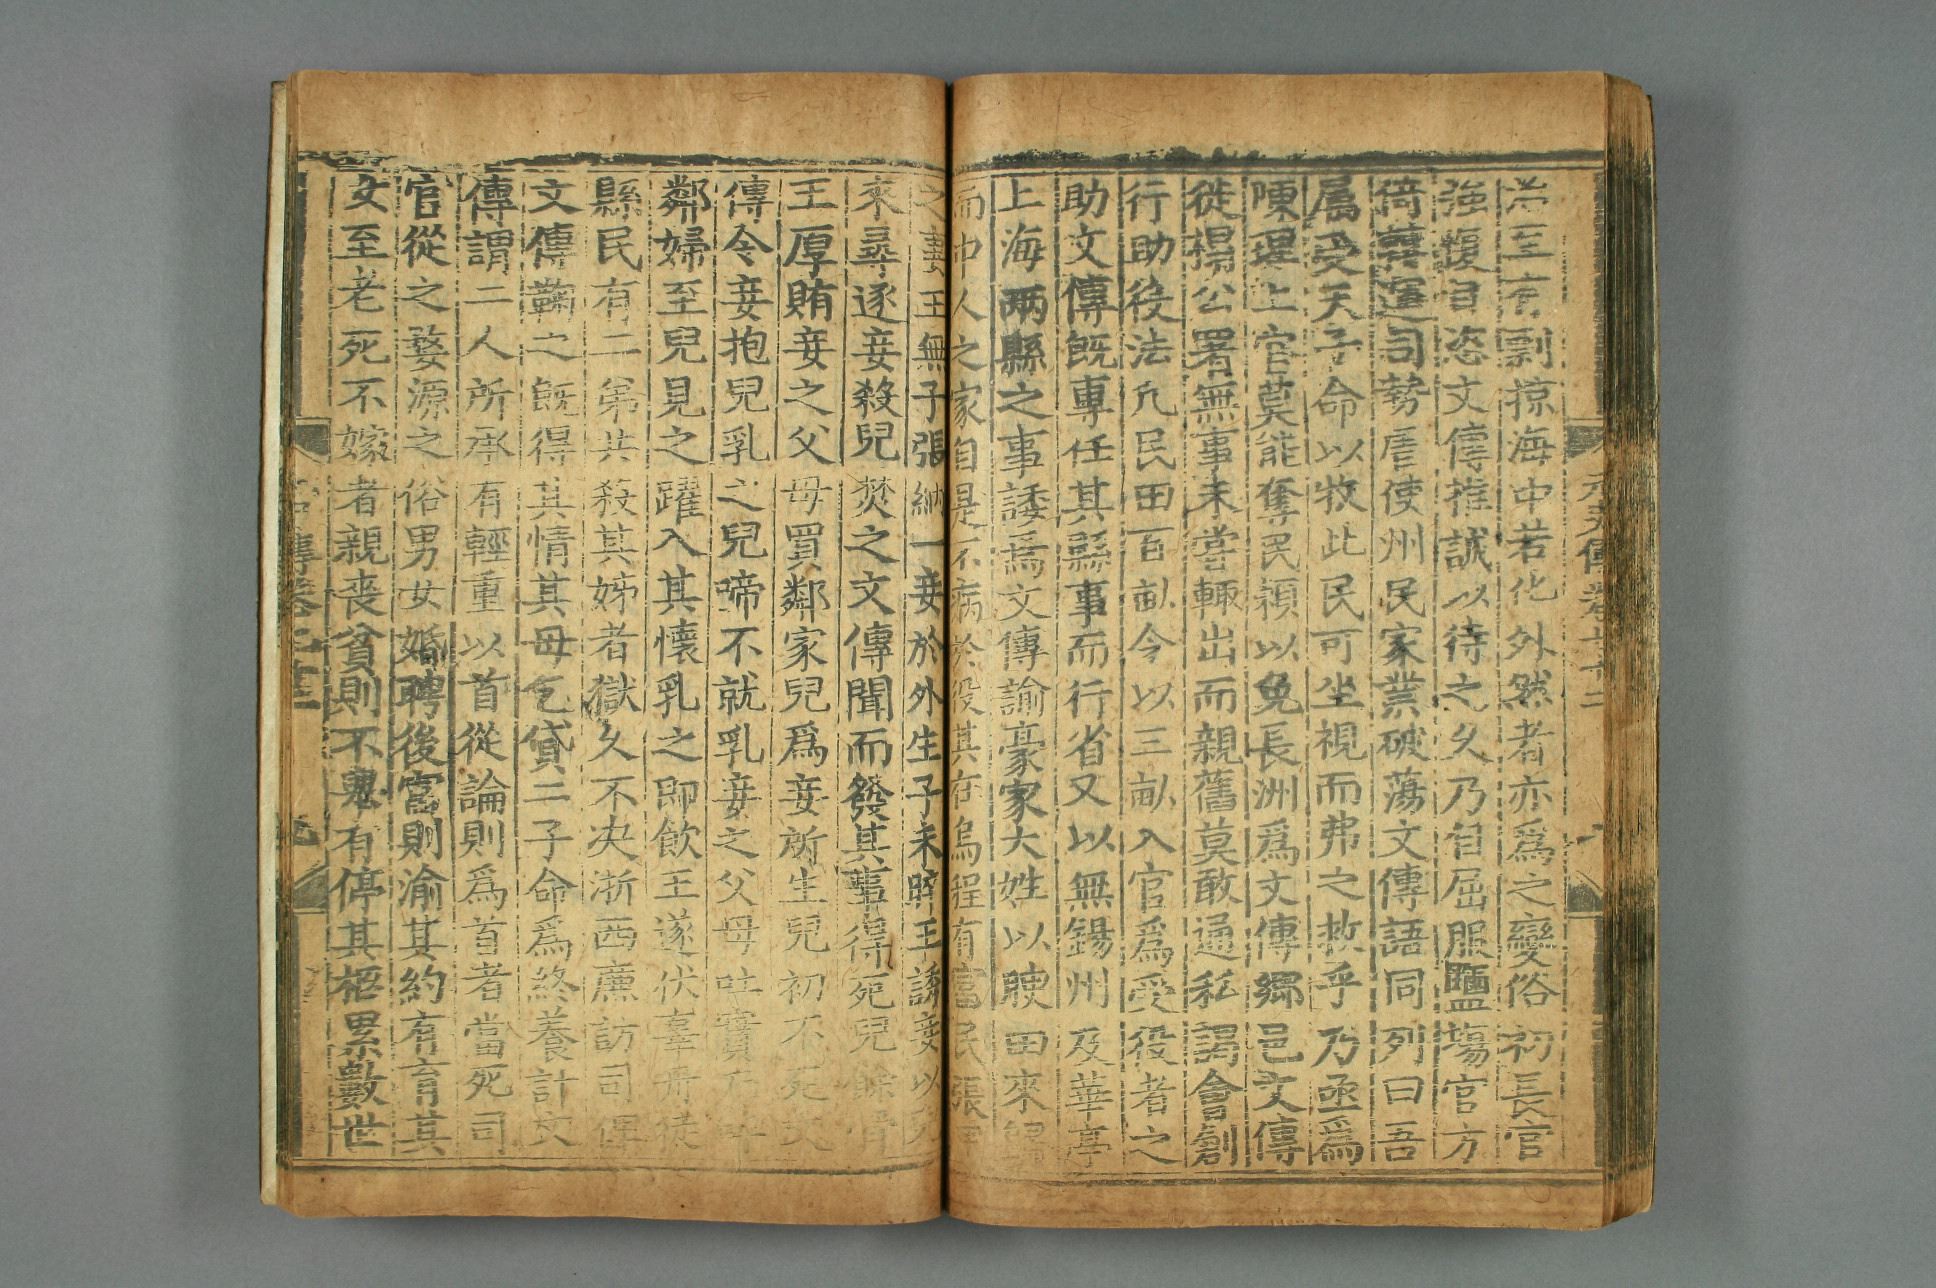 至有剽掠海中若化外然者亦爲之變俗初長官
強愎自恣文傳推誠以待之久乃自屈服鹽塲官方
倚轉運司勢虐使州民家業破蕩文傳語同列曰吾
属受天子命以牧此民可坐視而弗之救乎乃亟爲
陳理上官莫能奪民頼以免長洲爲文傳郷邑文傳
徙榻公署無事未嘗輒出而親舊莫敢通私謁會創
行助役法凢民田百畝令以三畝入官爲受役者之
助文傳既專任其縣事而行省又以無錫州及華亭
上海兩縣之事諉焉文傳諭豪家大姓以腴田來歸
而中人之家自是不病於役其在烏程有富民張
之妻王無子張納一妾於外生子未晬王誘妾以兒
來尋逐妾殺兒焚之文傳聞而發其事得死兒餘骨
王厚賄妾之父母買鄰家兒爲妾所生兒初不死文
傳令妾抱兒乳之兒啼不就乳妾之父母吐實乃呼
鄰婦至兒見之躍入其懷乳之即飲王遂伏辜丹徒
縣民有二弟共殺其姊者獄久不决浙西廉訪司俾
文傳鞫之既得其情其母乞貸二子命爲終養計文
傳謂二人所承有輕重以首從論則爲首者當死司
官從之婺源之俗男女婚聘後富則渝其約有育其
女至老死不嫁者親喪貧則不舉有停其柩累數世